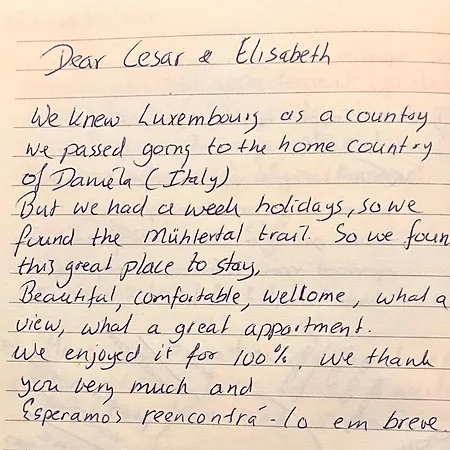 Dear Cesar & Elisabeth
We knew Luxembourg as a country
we passed going to the home country
of Daniëla (Italy)
But we had a week holidays, so we
found the Mühlertal trail. So we foun
this great place to stay,
Beautiful, comfortable, wellkome, what a
view, what a great appartment.
We enjoyed it for 100%, we thank
you very much and
Esperamos reencontrá-lo em breve.